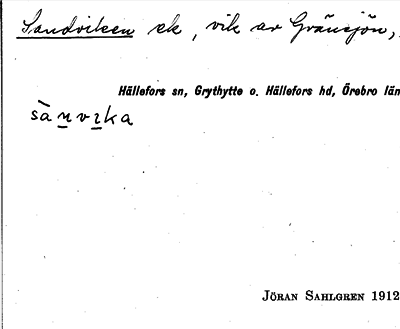 Sandviken ek, vik av Gränsjön,
Hällefors sn, Grythytte o. Hällefors hd, Örebro län
sànvika
JÖRAN SAHLGREN 1912